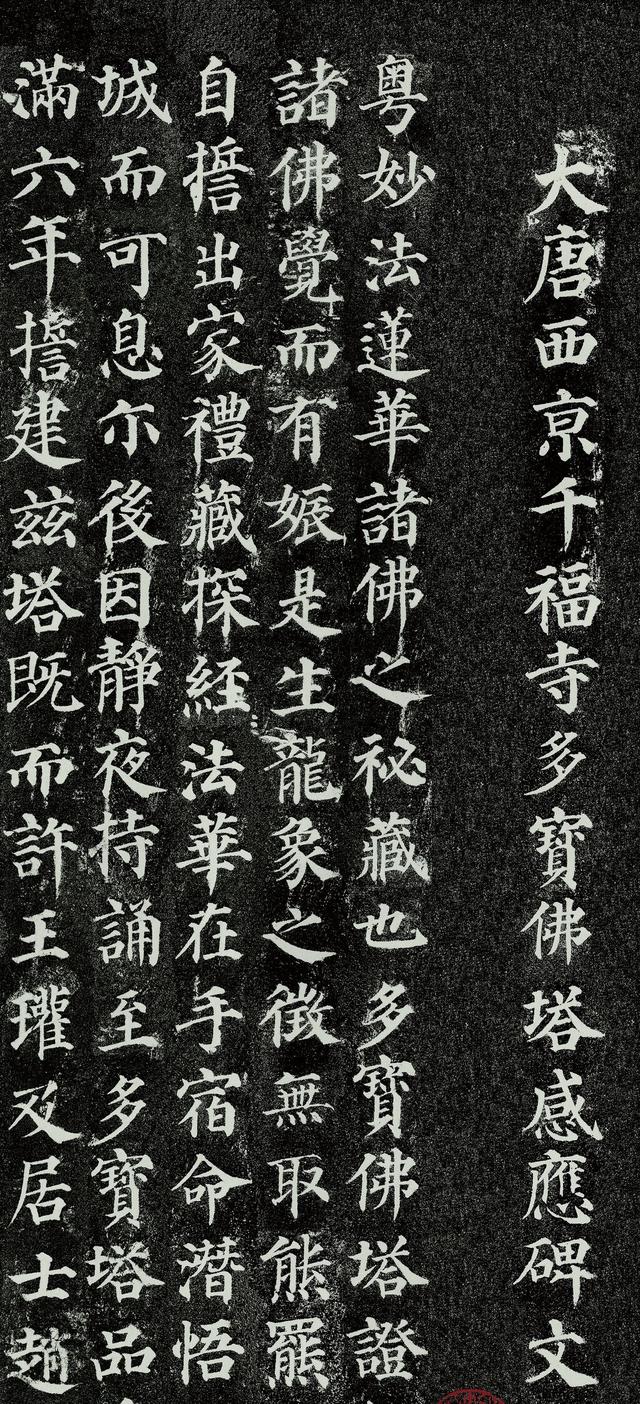 大唐西京千福寺多寶佛塔感應碑文
粵妙法蓮華諸佛之祕藏也多寶佛塔證
諸佛覺而有娠是生龍象之徵無取熊羆
自誓出家禮藏探經法華在手宿命潛悟
城而可息尒後因靜夜持誦至多寶塔品
滿六年誓建茲塔既而許王瓘及居士趙